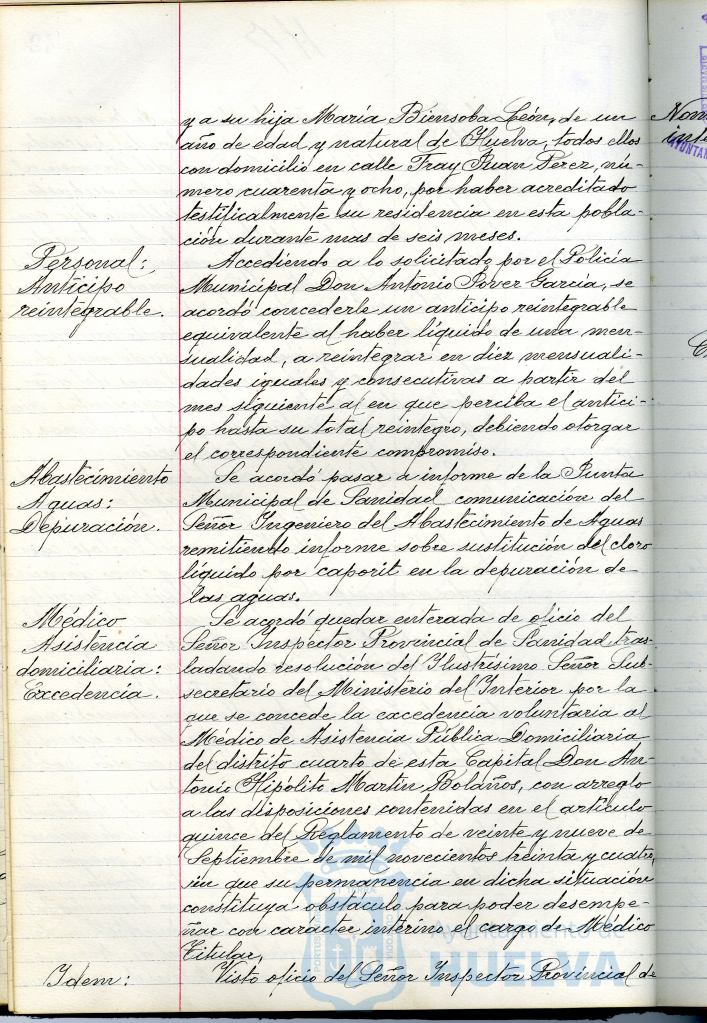 y a su hija María Biensoba León, de un
año de edad y natural de Huelva, todos ellos
con domicilio en calle Fray Juan Perez, nú-
mero cuarenta y ocho, por haber acreditado
testificalmente su residencia en esta pobla-
ción durante mas de seis meses.
Personal:
Anticipo
reintegrable.
Accediendo a lo solicitado por el Policía
Municipal Don Antonio Jover García, se
acordó concederle un anticipo reintegrable
equivalente al haber líquido de una men-
sualidad, a reintegrar en diez mensuali-
dades iguales y consecutivas a partir del
mes siguiente al en que perciba el antici-
po hasta su total reintegro, debiendo otorgar
el correspondiente compromiso.
Abastecimiento
Aguas:
Depuración.
Se acordó pasar a informe de la Junta
Municipal de Sanidad comunicación del
Señor Ingeniero del Abastecimiento de Aguas
remitiendo informe sobre sustitución del cloro
líquido por caporit en la depuración de
las aguas.
Médico
Asistencia
domiciliaria:
Excedencia.
Se acordó quedar enterada de oficio del
Señor Inspector Provincial de Sanidad tras-
ladando resolución del Ilustrísimo Señor Sub-
secretario del Ministerio del Interior por la
que se concede la excedencia voluntaria al
Médico de Asistencia Pública Domiciliaria
del distrito cuarto de esta Capital Don An-
tonio Hipólito Martín Bolaños, con arreglo
a las disposiciones contenidas en el artículo
quince del Reglamento de veinte y nueve de
Septiembre de mil novecientos treinta y cuatro,
sin que su permanencia en dicha situación
constituya obstáculo para poder desempe-
ñar con caracter interino el cargo de Médico
Titular.
Idem:
Visto oficio del Señor Inspector Provincial de
Ayuntamiento de
HUELVA